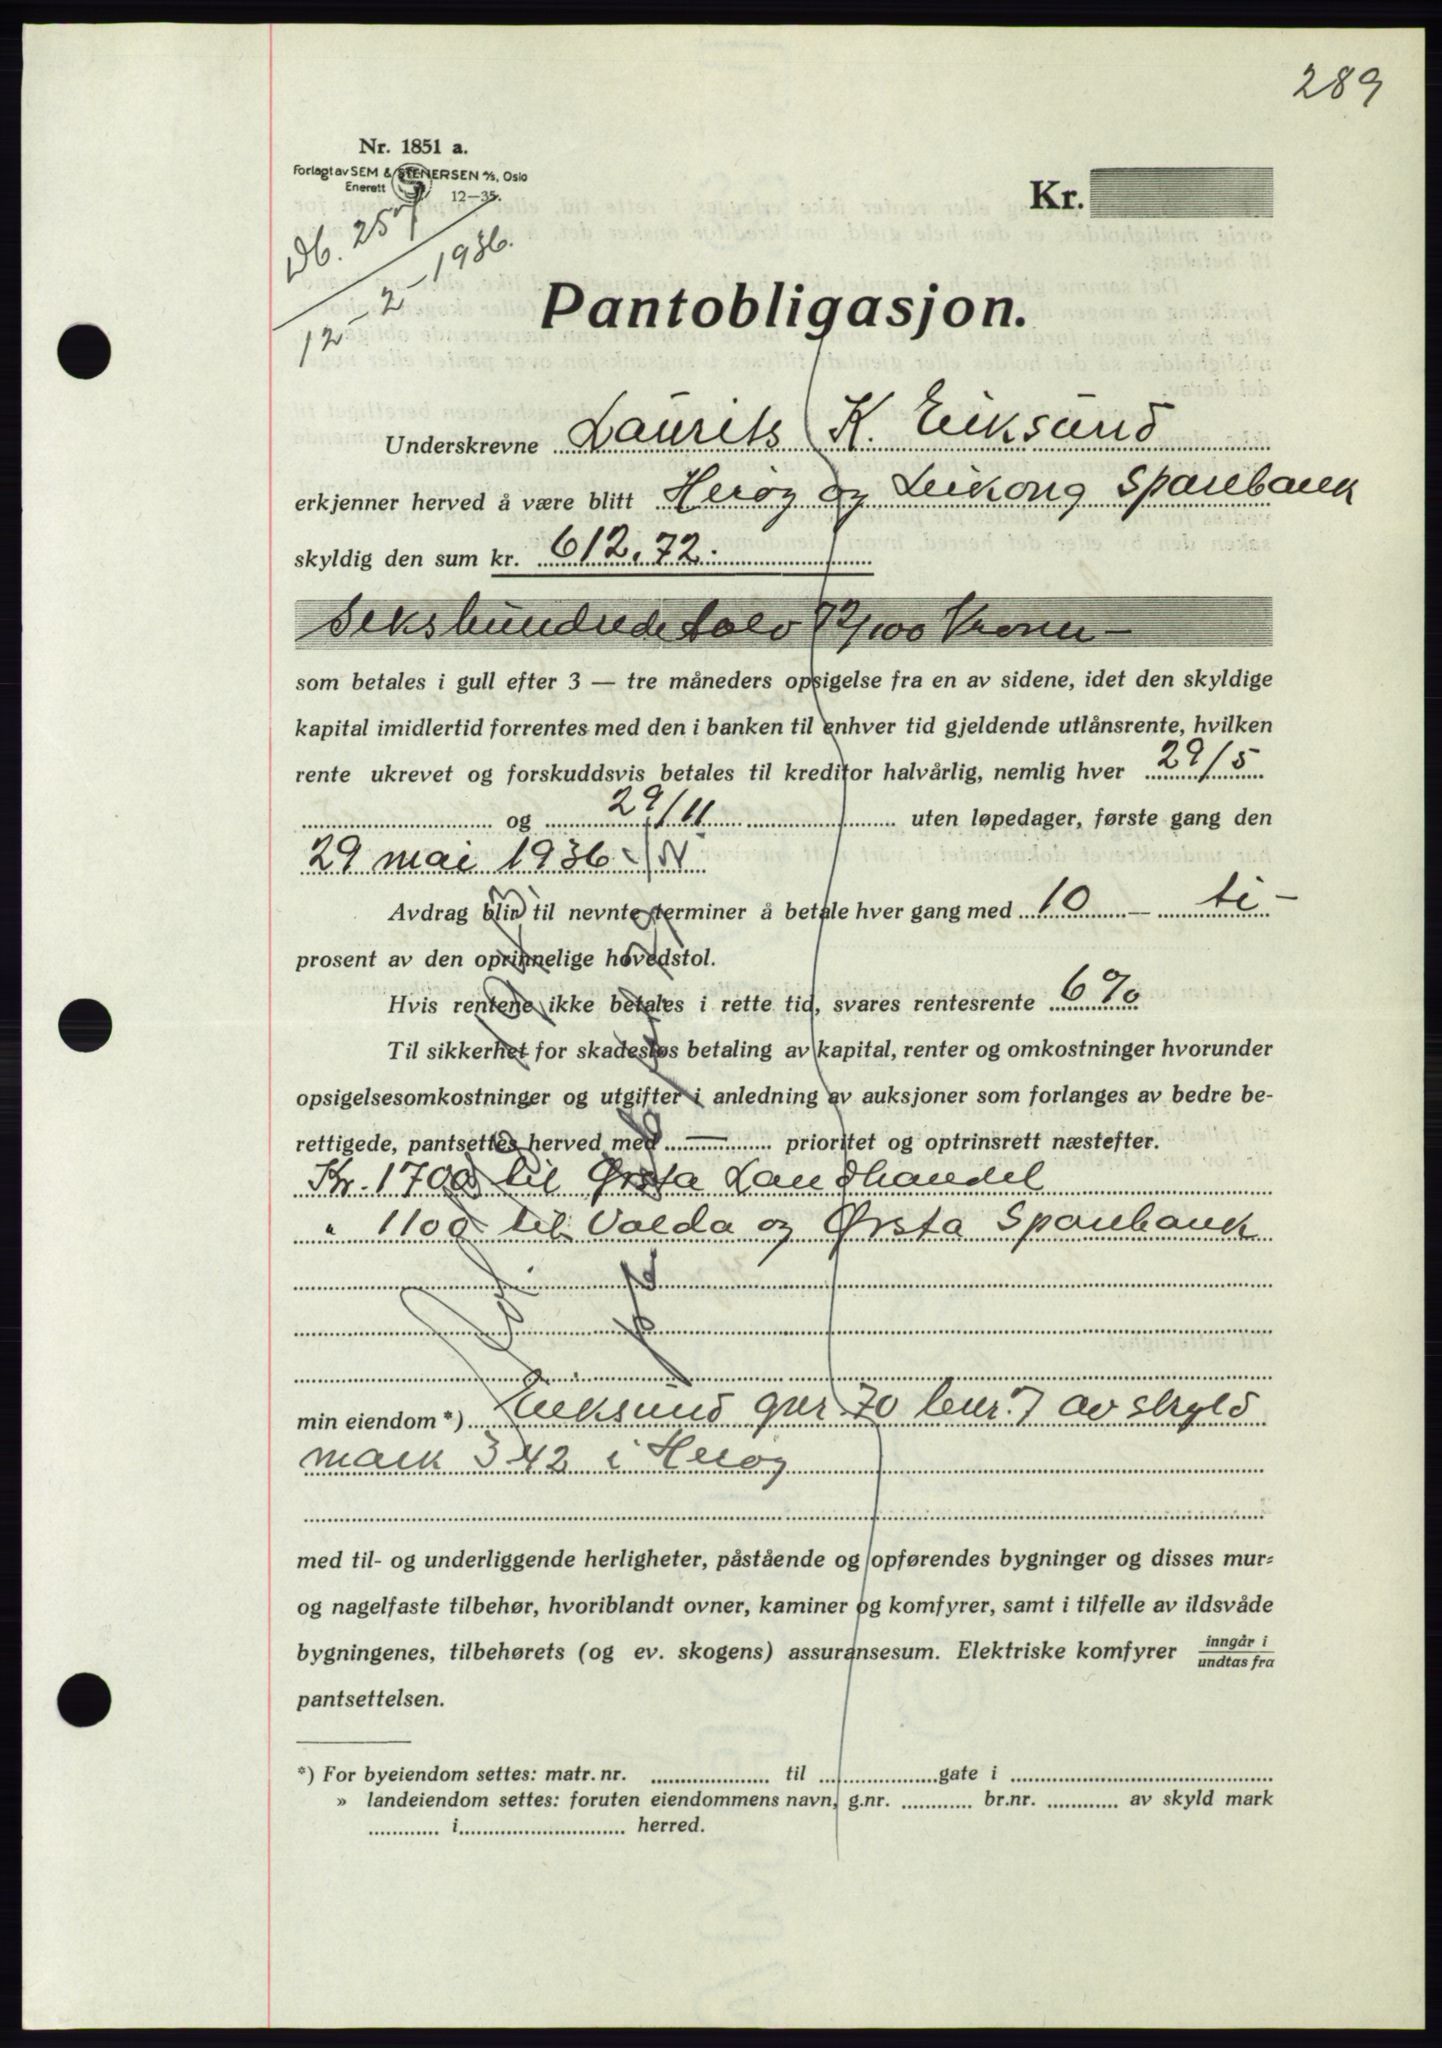 289
Nr. 1851 a.
Forlagt av SEM & STENERSEN A/S, Oslo
Enerett 12—35.
Kr.
Db. 257
12-2-1936.
Pantobligasjon.
Underskrevne Laurits K. Eiksund
erkjenner herved å være blitt Herøy og Leikong Sparebank
skyldig den sum kr. 612,72.
Sekshundredetolv 72/100 Kroner -
som betales i gull efter 3 — tre måneders opsigelse fra en av sidene, idet den skyldige
kapital imidlertid forrentes med den i banken til enhver tid gjeldende utlånsrente, hvilken
rente ukrevet og forskuddsvis betales til kreditor halvårlig, nemlig hver 29/5
og 29/11 uten løpedager, første gang den
29 mai 1936
Avdrag blir til nevnte terminer å betale hver gang med 10 — ti -
prosent av den oprinnelige hovedstol.
Hvis rentene ikke betales i rette tid, svares rentesrente 6%
Til sikkerhet for skadesløs betaling av kapital, renter og omkostninger hvorunder
opsigelsesomkostninger og utgifter i anledning av auksjoner som forlanges av bedre be-
rettigede, pantsettes herved med — prioritet og optrinsrett næstefter.
Kr. 1700 til Ørsta Landhandel
" 1100 til Volda og Ørsta Sparebank
min eiendom *) Eieksund gnr. 70 bnr. 7 av skyld
mark 3.42 i Herøy
med til- og underliggende herligheter, påstående og opførendes bygninger og disses mur-
og nagelfaste tilbehør, hvoriblandt ovner, kaminer og komfyrer, samt i tilfelle av ildsvåde
bygningenes, tilbehørets (og ev. skogens) assuransesum. Elektriske komfyrer inngår i / undtas fra
pantsettelsen.
*) For byeiendom settes: matr. nr. til gate i
» landeiendom settes: foruten eiendommens navn, g.nr. br.nr. av skyld mark
i herred.